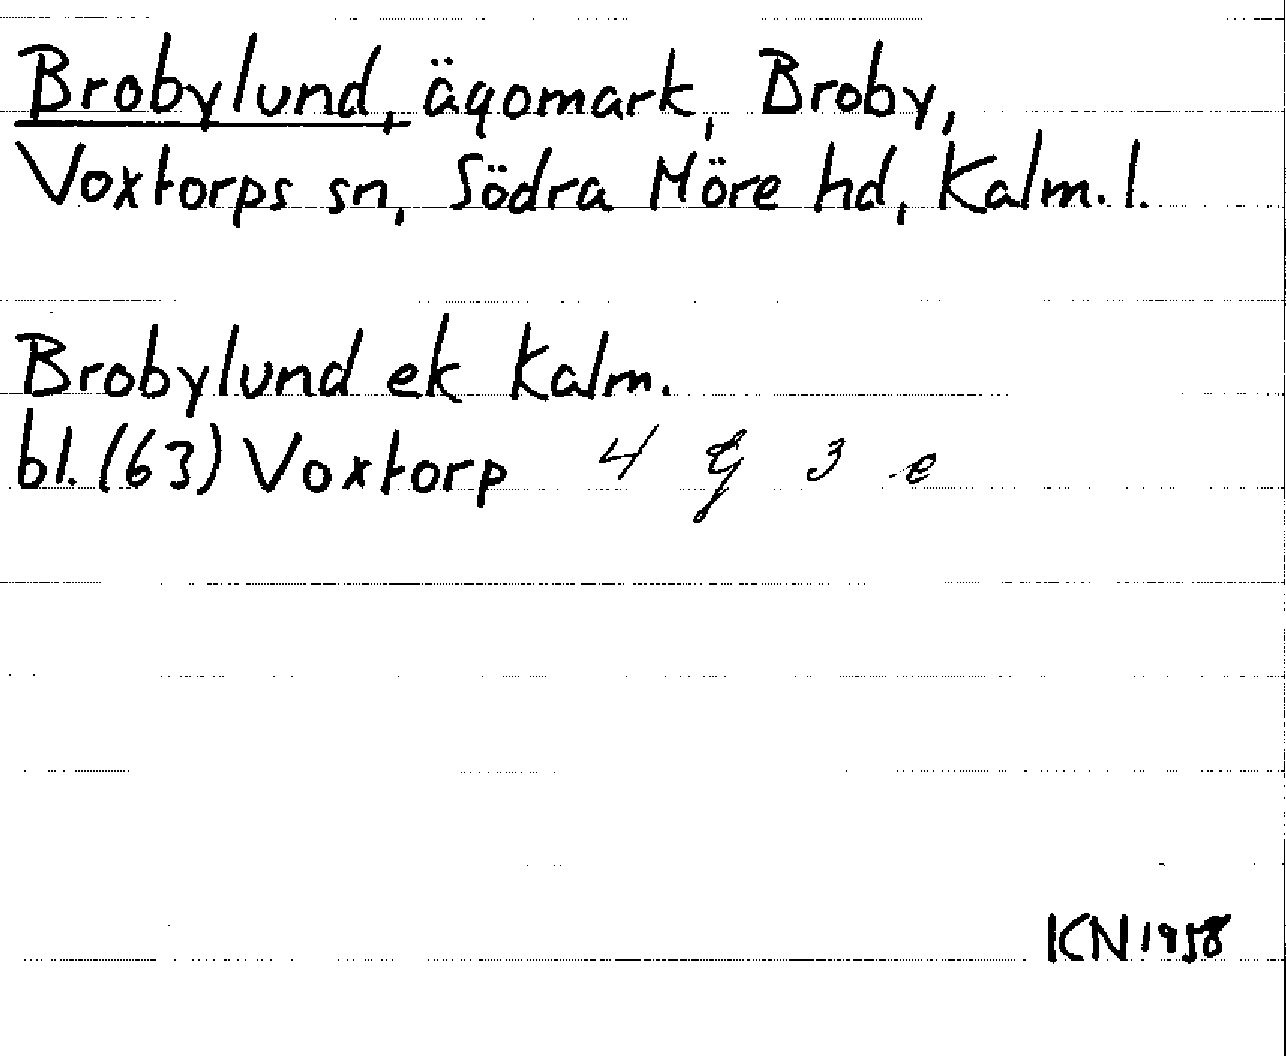 Brobylund, ägomark, Broby,
Voxtorps sn, Södra Möre hd, Kalm. l.
Brobylund ek Kalm.
bl. (63) Voxtorp 4 G 3 e
KN 1958